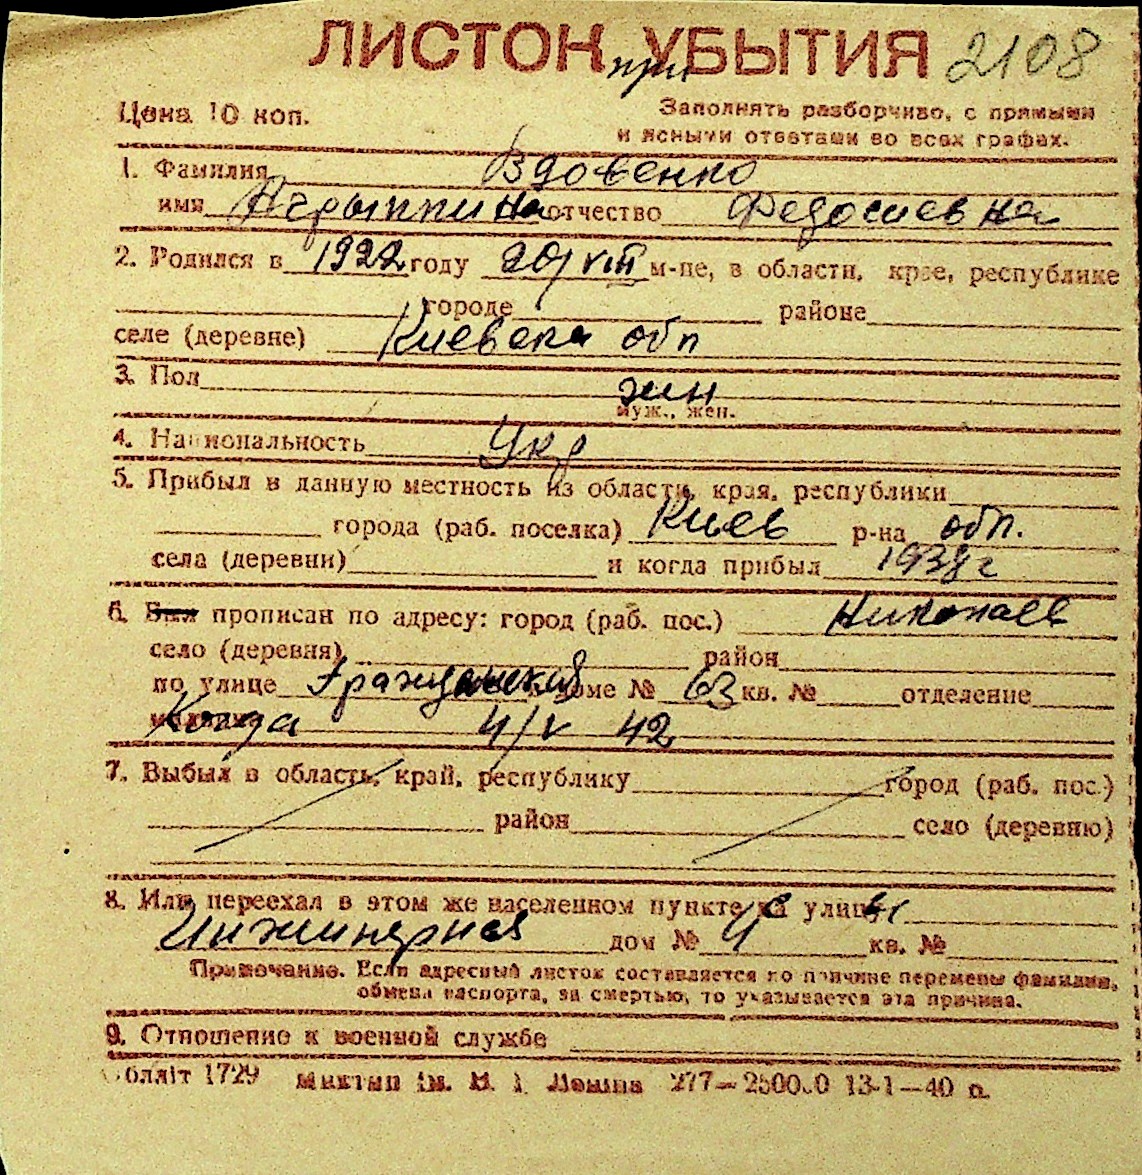 ЛИСТОК при УБЫТИЯ 2108
Цена 10 коп.
Заполнять разборчиво, с прямыми
и ясными ответами во всех графах.
1. Фамилия Вдовенко
имя Агрыппина отчество Федосиевна
2. Родился в 1922 году 20/VIII м-це, в области, крае, республике
городе районе
селе (деревне) Киевска обл
3. Пол жин
муж., жен.
4. Национальность Укр
5. Прибыл в данную местность из области, края, республики
города (раб. поселка) Киев р-на обл.
села (деревни) и когда прибыл 1938 г
6. Был прописан по адресу: город (раб. пос.) Николаев
село (деревня) район
по улице Гражданская доме № 63 кв. № отделение
Когда 4/V 42
7. Выбыл в область, край, республику город (раб. пос.)
район село (деревню)
8. Или переехал в этом же населенном пункте с улицы
Инжинерная дом № 4 кв. №
Примечание. Если адресный листок составляется по причине перемены фамилии,
обмена паспорта, за смертью, то указывается эта причина.
9. Отношение к военной службе
Обллiт 1729 Миктип iм. В. I. Ленiна 277—250000 13-1—40 р.